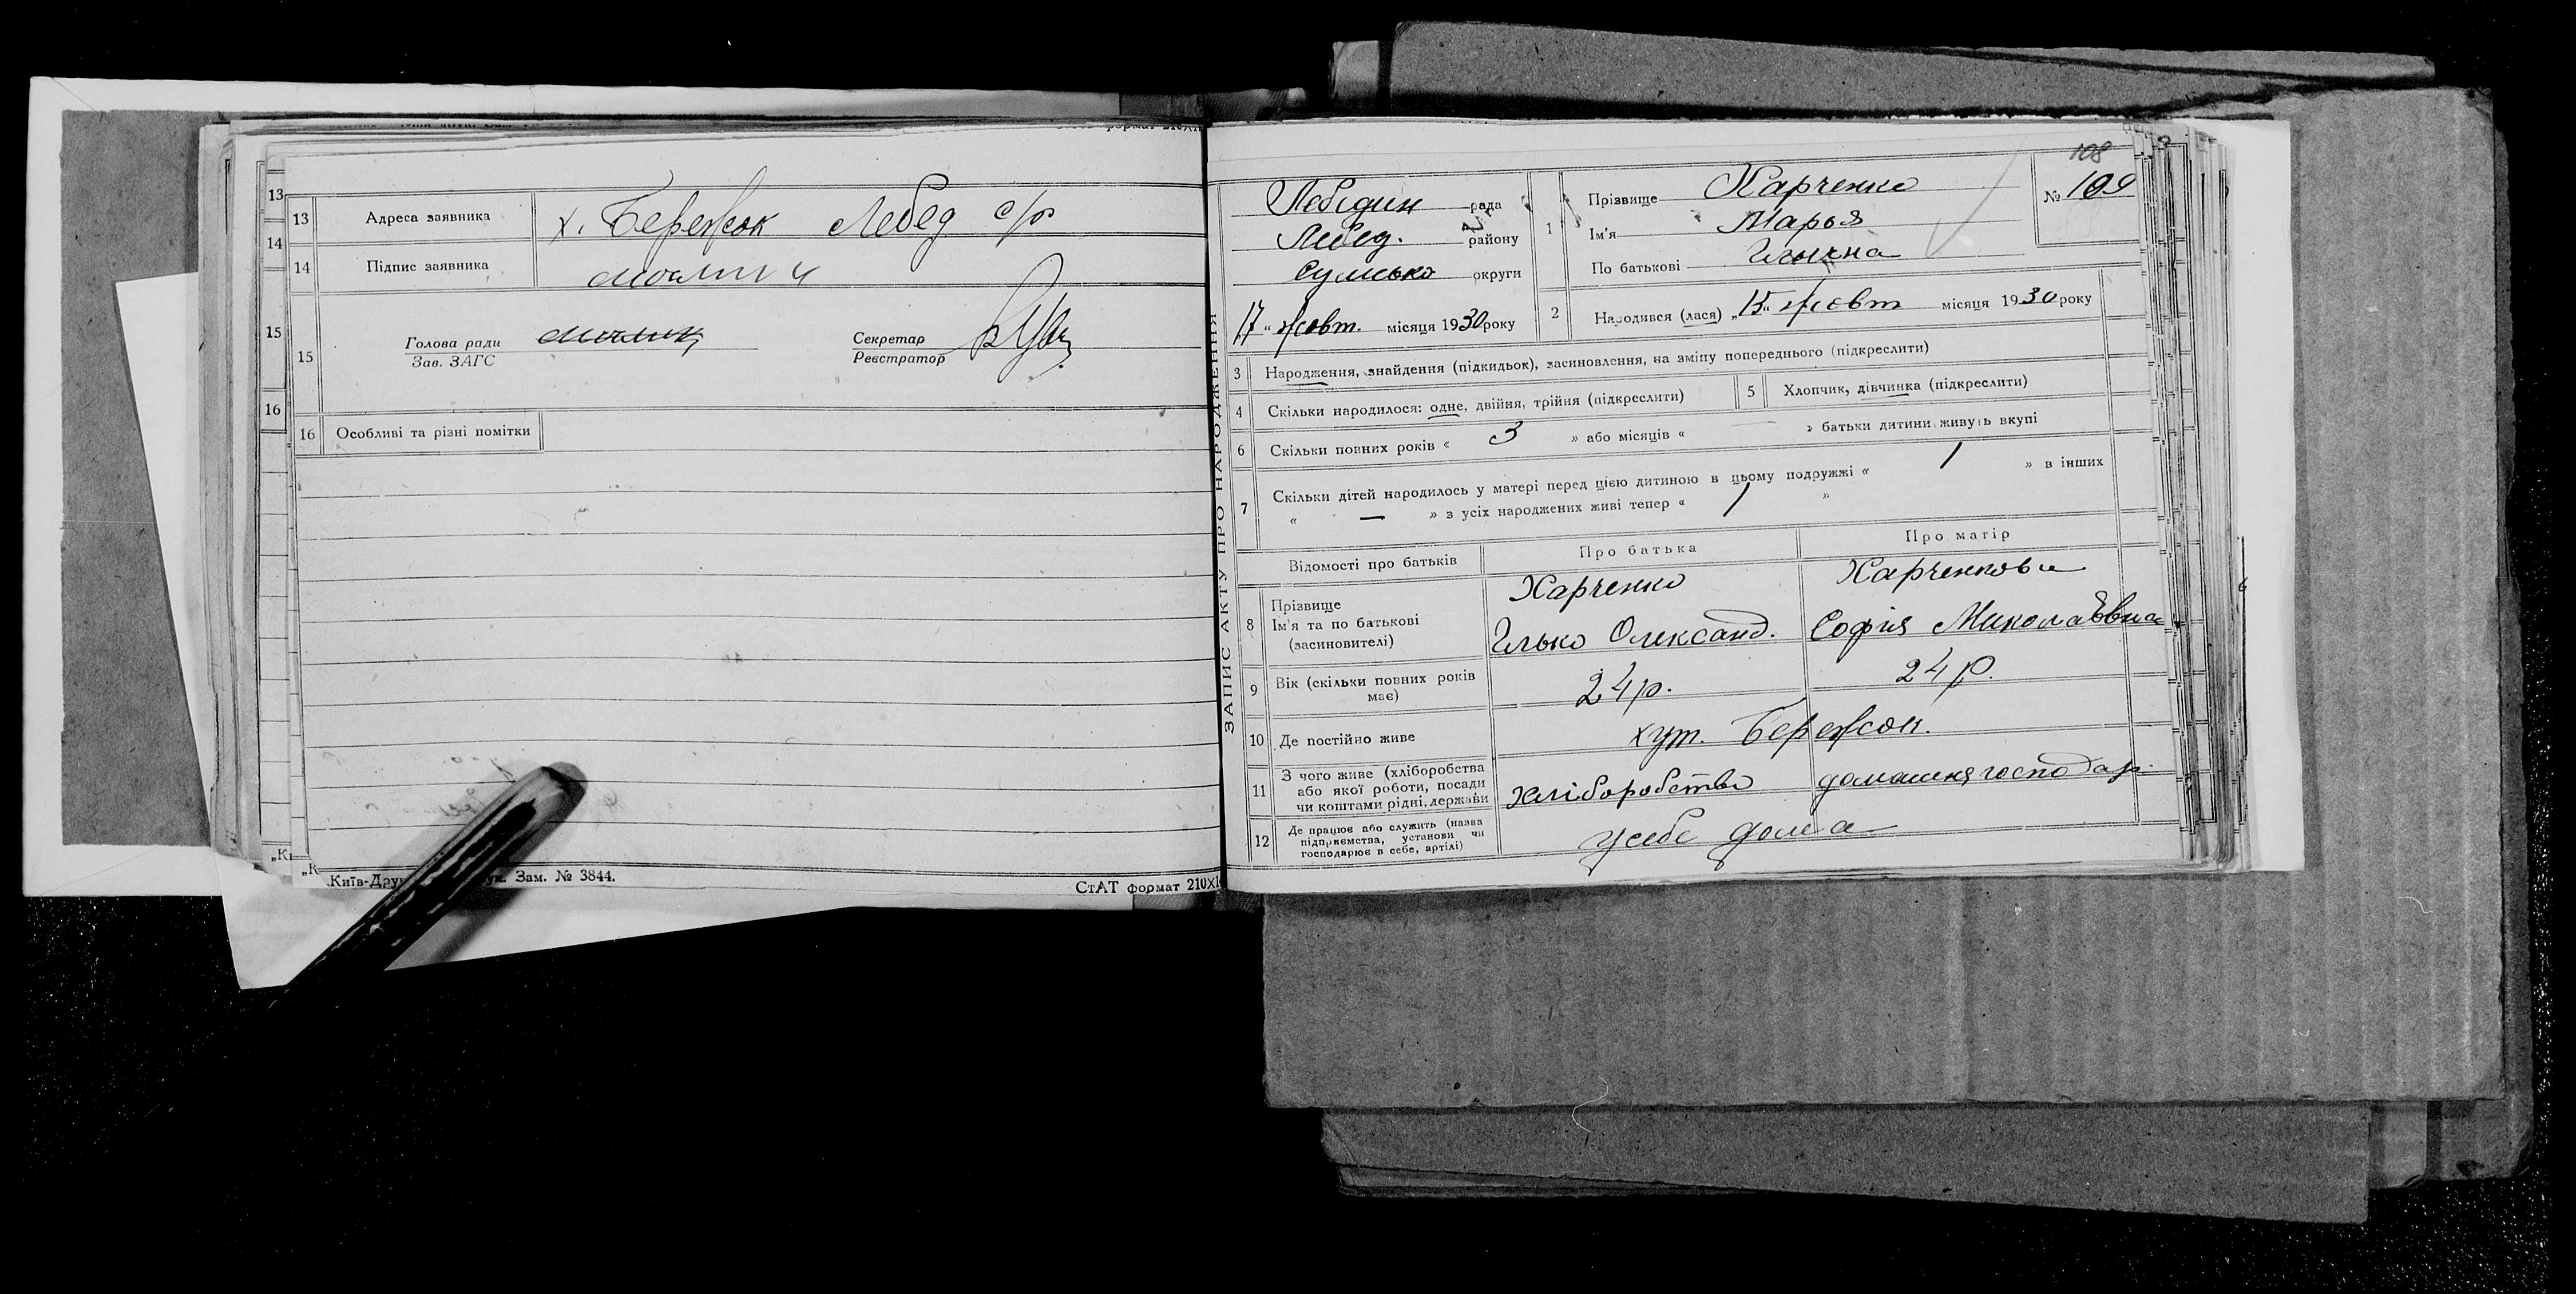 13 Адреса заявника х. Бережок Лебед с/р
14 Підпис заявника
15 Голова ради Секретар
Зав. ЗАГС Реєстратор
16 Особливі та різні помітки
Зам. № 3844.
СтАТ формат 210X1
108
ЗАПИС АКТУ ПРО НАРОДЖЕННЯ
Лебедин рада
Лебед. району
Сумсько округи
17 „ жовт. місяця 1930 року
1 Прізвище Харченко
Ім'я Марья
По батькові Ильична
№ 109
2 Народився (лася) „15„ жовт місяця 1930 року
3 Народження, знайдення (підкидьок), засиновлення, на зміну попереднього (підкреслити)
4 Скільки народилося: одне, двійня, трійня (підкреслити)
5 Хлопчик, дівчинка (підкреслити)
6 Скільки повних років « 3 » або місяців « — » батьки дитини живуть вкупі
7 Скільки дітей народилось у матері перед цією дитиною в цьому подружжі « 1 » в інших
« — » з усіх народжених живі тепер « 1 »
Відомості про батьків Про батька Про матір
8 Прізвище Харченко Харченкова
Ім'я та по батькові Илько Олександ. Софія Миколаївна
(засиновителі)
9 Вік (скільки повних років має) 24 р. 24 р.
10 Де постійно живе хут. Бережок.
11 З чого живе (хліборобства або якої роботи, посади чи коштами рідні, держави хліборобство домашня господар.
12 Де працює або служить (назва підприємства, установи чи господарює в себе, артілі) у себе дома